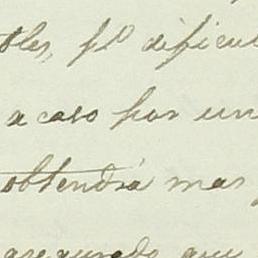 bles, pº dificul
acaso por un
obtendrá mas
asegurado, que